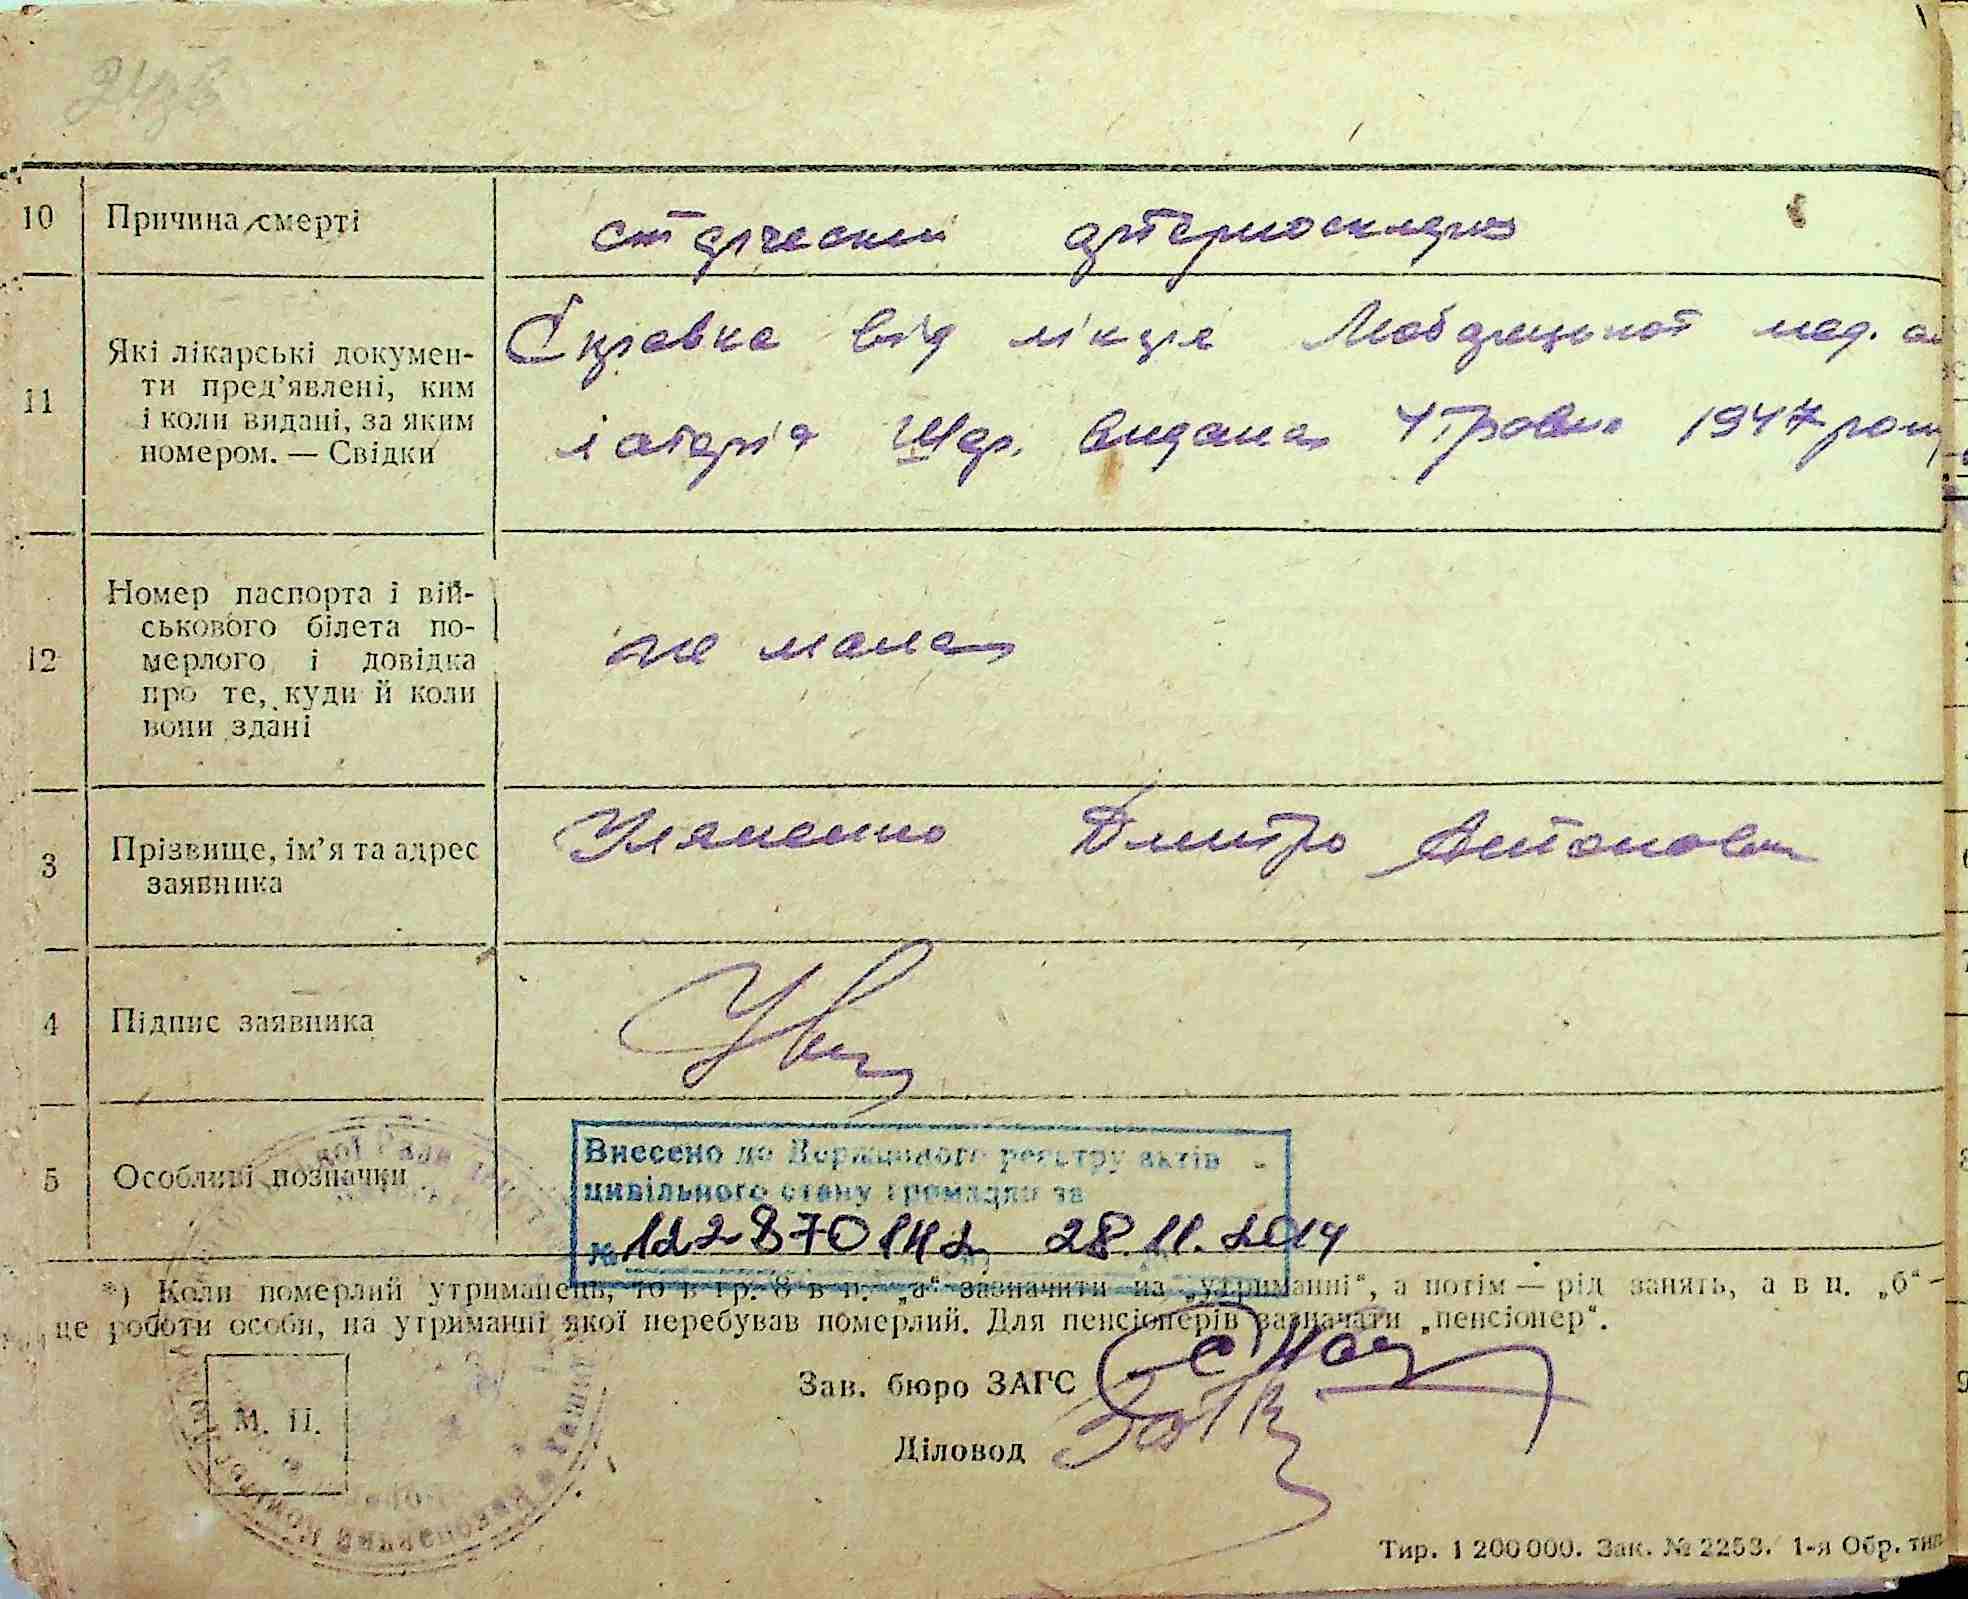 10 Причина смерті
старческий артериосклероз
11 Які лікарські докумен-
ти пред'явлені, ким
і коли видані, за яким
номером. — Свідки
Справка від лікця мед.
Шдр. видана 4 травня 1947 року
12 Номер паспорта і вій-
ськового білета по-
мерлого і довідка
про те, куди й коли
вони здані
не мала
3 Прізвище, ім'я та адрес
заявника
Уляненко Дмитро Антонович
4 Підпис заявника
5 Особливі позначки
Внесено до Державного реєстру актів
цивільного стану громадян за
№ 122870142 28.11.2014
*) Коли померлий утриманець, то в гр. 8 в п. „а“ зазначити на „утриманні“, а потім — рід занять, а в п. „б“ –
це роботи особи, на утриманні якої перебував померлий. Для пенсіонерів зазначати „пенсіонер“.
Зав. бюро ЗАГС
М. П.
Діловод
Тир. 1 200 000. Зак. № 2253. 1-я Обр. тип